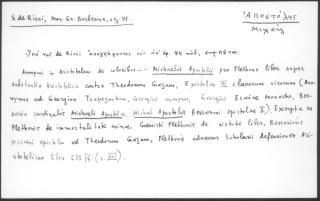 S. de Ricci, Mss. Gr. Barberin., σελ. 84.
Ἀποστόλης
Μιχαὴλ
Ὑπὸ τοῦ de Ricci ἀναγράφονται εἰς τὸ ἀρ. 84 κώδ., σημ.
Anonymi in Aristotelem de coloribus..... Michaelis Apostolii pro Plethone liber super
substantia Aristotelica contra Theodorum Gazam, Epistolae XII clarorum virorum (Ano-
nymus ad Georgium Trapezuntium, Georgius, Georgius monacho, Bes-
sario cardinalis Michaeli Apostolio, Michael Apostolis Bessarioni epistolae X). Excerpta ex
Plethonis de immortalitate animae, Gemisti Plethonis de virtute liber, Bessarionis
epistola ad Theodorum Gazam, Plethonis adversus Scholarii defensionem Ari-
stotelicae liber 235 ff. (s. XVI).